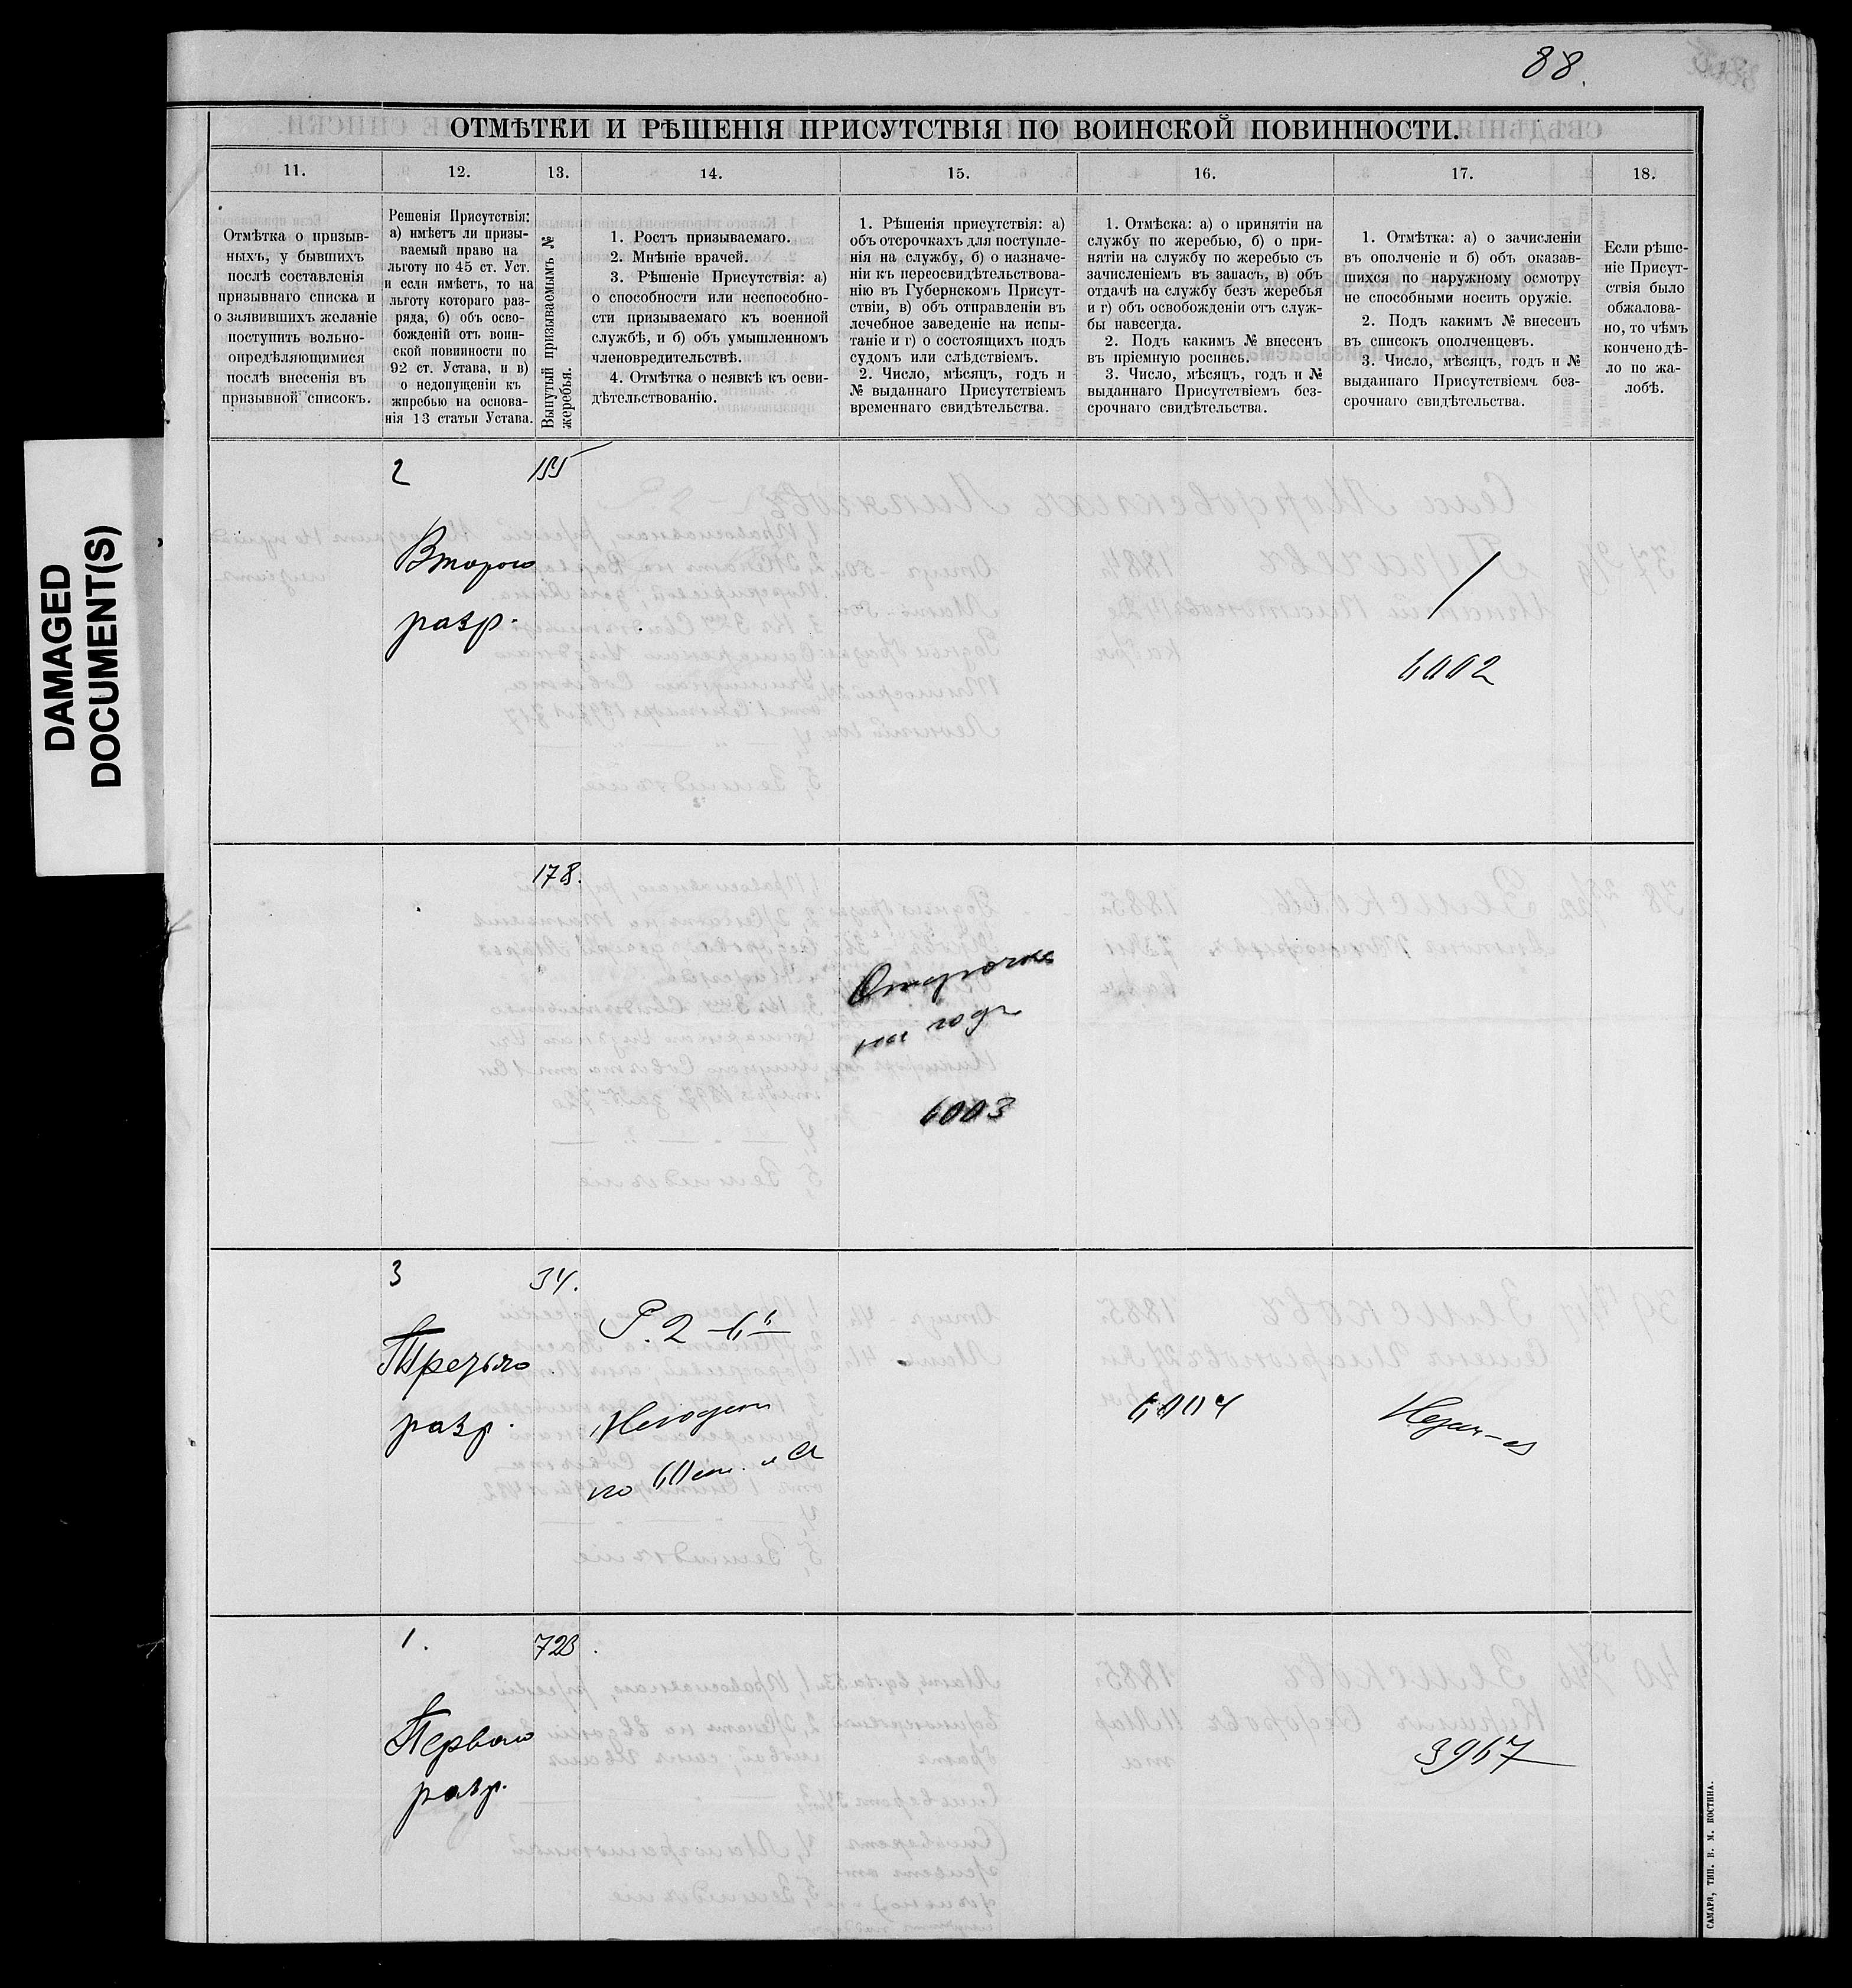 88.
DAMAGED
DOCUMENT(S)
ОТМѢТКИ И РѢШЕНІЯ ПРИСУТСТВІЯ ПО ВОИНСКОЙ ПОВИННОСТИ.
11.
12.
13.
14.
15.
16.
17.
18.
Отмѣтка о призыв-
ныхъ, у бывшихъ
послѣ составленія
призывнаго списка и
о заявившихъ желаніе
поступить вольно-
опредѣляющимися
послѣ внесенія въ
призывной список.
Решенія Присутствія:
а) имѣетъ ли призы-
ваемый право на
льготу по 45 ст. Уст.
и если имѣетъ, то на
льготу котораго раз-
ряда, б) объ осво-
божденій отъ воин-
ской повинности по
92 ст. Устава, и в)
о недопущеніи къ
жпребью на основа-
нія 13 статьи Устава.
Вынутый призываемымъ №
жеребья.
1. Ростъ призываемаго.
2. Мнѣніе врачей.
3. Рѣшеніе Присутствія: а)
о способности или неспособно-
сти призываемаго къ военной
службѣ, и б) объ умышленномъ
членовредительствѣ.
4. Отмѣтка о неявкѣ къ осви-
дѣтельствованію.
1. Рѣшенія присутствія: а)
объ отсрочкахъ для поступле-
нія на службу, б) о назначе-
ніи къ переосвидѣтельствова-
нію въ Губернскомъ Присут-
ствіи, в) объ отправленіи въ
лечебное заведеніе на испы-
таніе и г) о состоящихъ подъ
судомъ или слѣдствіемъ.
2. Число, мѣсяцъ, годъ и
№ выданнаго Присутствіемъ
временнаго свидѣтельства.
1. Отмѣска: а) о принятіи на
службу по жеребью, б) о при-
нятіи на службу по жеребью съ
зачисленіемъ въ запасъ, в) объ
отдачѣ на службу безъ жеребья
и г) объ освобожденіи отъ служ-
бы навсегда.
2. Подъ какимъ № внесенъ
въ пріемную роспись.
3. Число, мѣсяцъ, годъ и №
выданнаго Присутствіемъ без-
срочнаго свидѣтельства.
1. Отмѣтка: а) о зачисленіи
въ ополченіе и б) объ оказав-
шихся по наружному осмотру
не способными носить оружіе.
2. Подъ какимъ № внесенъ
въ списокъ ополченцевъ.
3. Число, мѣсяцъ, годъ и №
выданнаго Присутствіемъ без-
срочнаго свидѣтельства.
Если рѣше-
ніе Присут-
ствія было
обжалова-
но, то чѣмъ
кончено дѣ-
ло по жа-
лобѣ.
2
155
Второго
разр.
6002
178.
Отсрочка
на годъ
6003
3
34.
Третьяго
разр.
Р. 2 - 6"
Негоденъ
по 60 ст.
6004
1.
723.
Перваго
разр.
3967
САМАРА, ТИП. В. М. КОСТИНА.